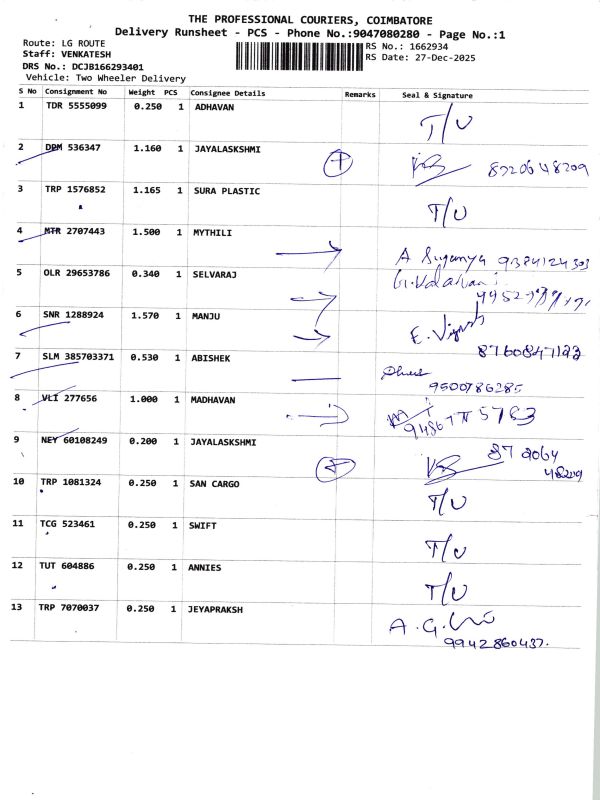 THE PROFESSIONAL COURIERS, COIMBATORE
Delivery Runsheet - PCS - Phone No.:9047080280 - Page No.:1
Route: LG ROUTE
RS No.: 1662934
Staff: VENKATESH
RS Date: 27-Dec-2025
DRS No.: DCJB166293401
Vehicle: Two Wheeler Delivery
S No Consignment No Weight PCS Consignee Details Remarks Seal & Signature
1 TDR 5555099 0.250 1 ADHAVAN T/U
2 DPM 536347 1.160 1 JAYALASKSHMI 8720648209
3 TRP 1576852 1.165 1 SURA PLASTIC T/U
4 MTR 2707443 1.500 1 MYTHILI A Suganya 9384124303
5 OLR 29653786 0.340 1 SELVARAJ
6 SNR 1288924 1.570 1 MANJU E. 8760847122
7 SLM 385703371 0.530 1 ABISHEK 9500786285
8 VLI 277656 1.000 1 MADHAVAN
9 NEY 60108249 0.200 1 JAYALASKSHMI
10 TRP 1081324 0.250 1 SAN CARGO T/U
11 TCG 523461 0.250 1 SWIFT T/U
12 TUT 604886 0.250 1 ANNIES T/U
13 TRP 7070037 0.250 1 JEYAPRAKSH A.G.
9942860437.